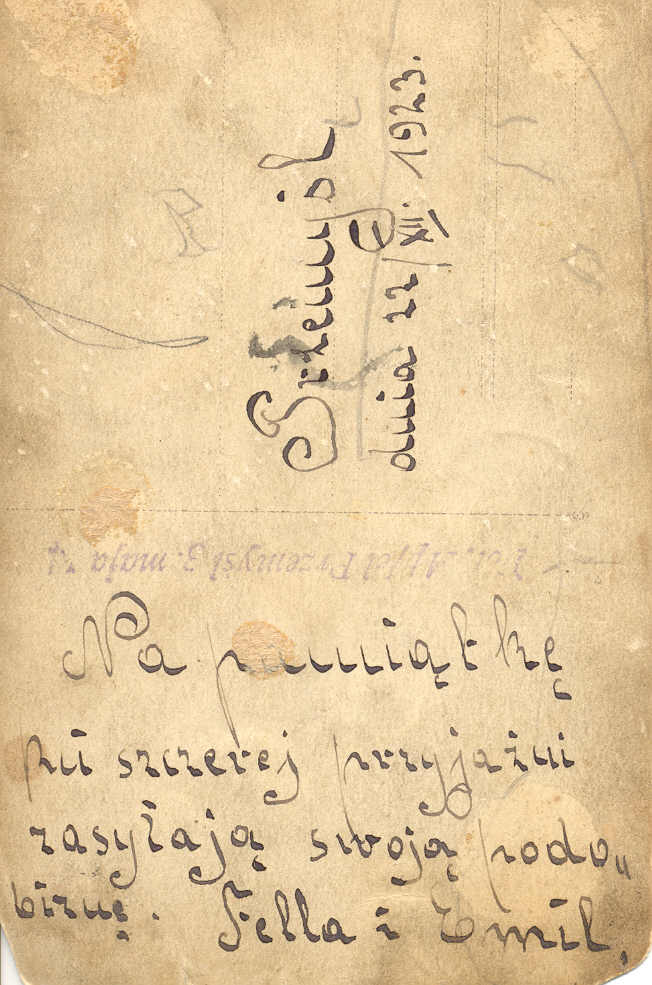 Przemyśl
dnia 22/XII. 1923.
Przemyśl 3. maja
Na pamiątkę
szczerej przyjaźni
zasyłają swoją podo„
biznę. Fella i Emil.